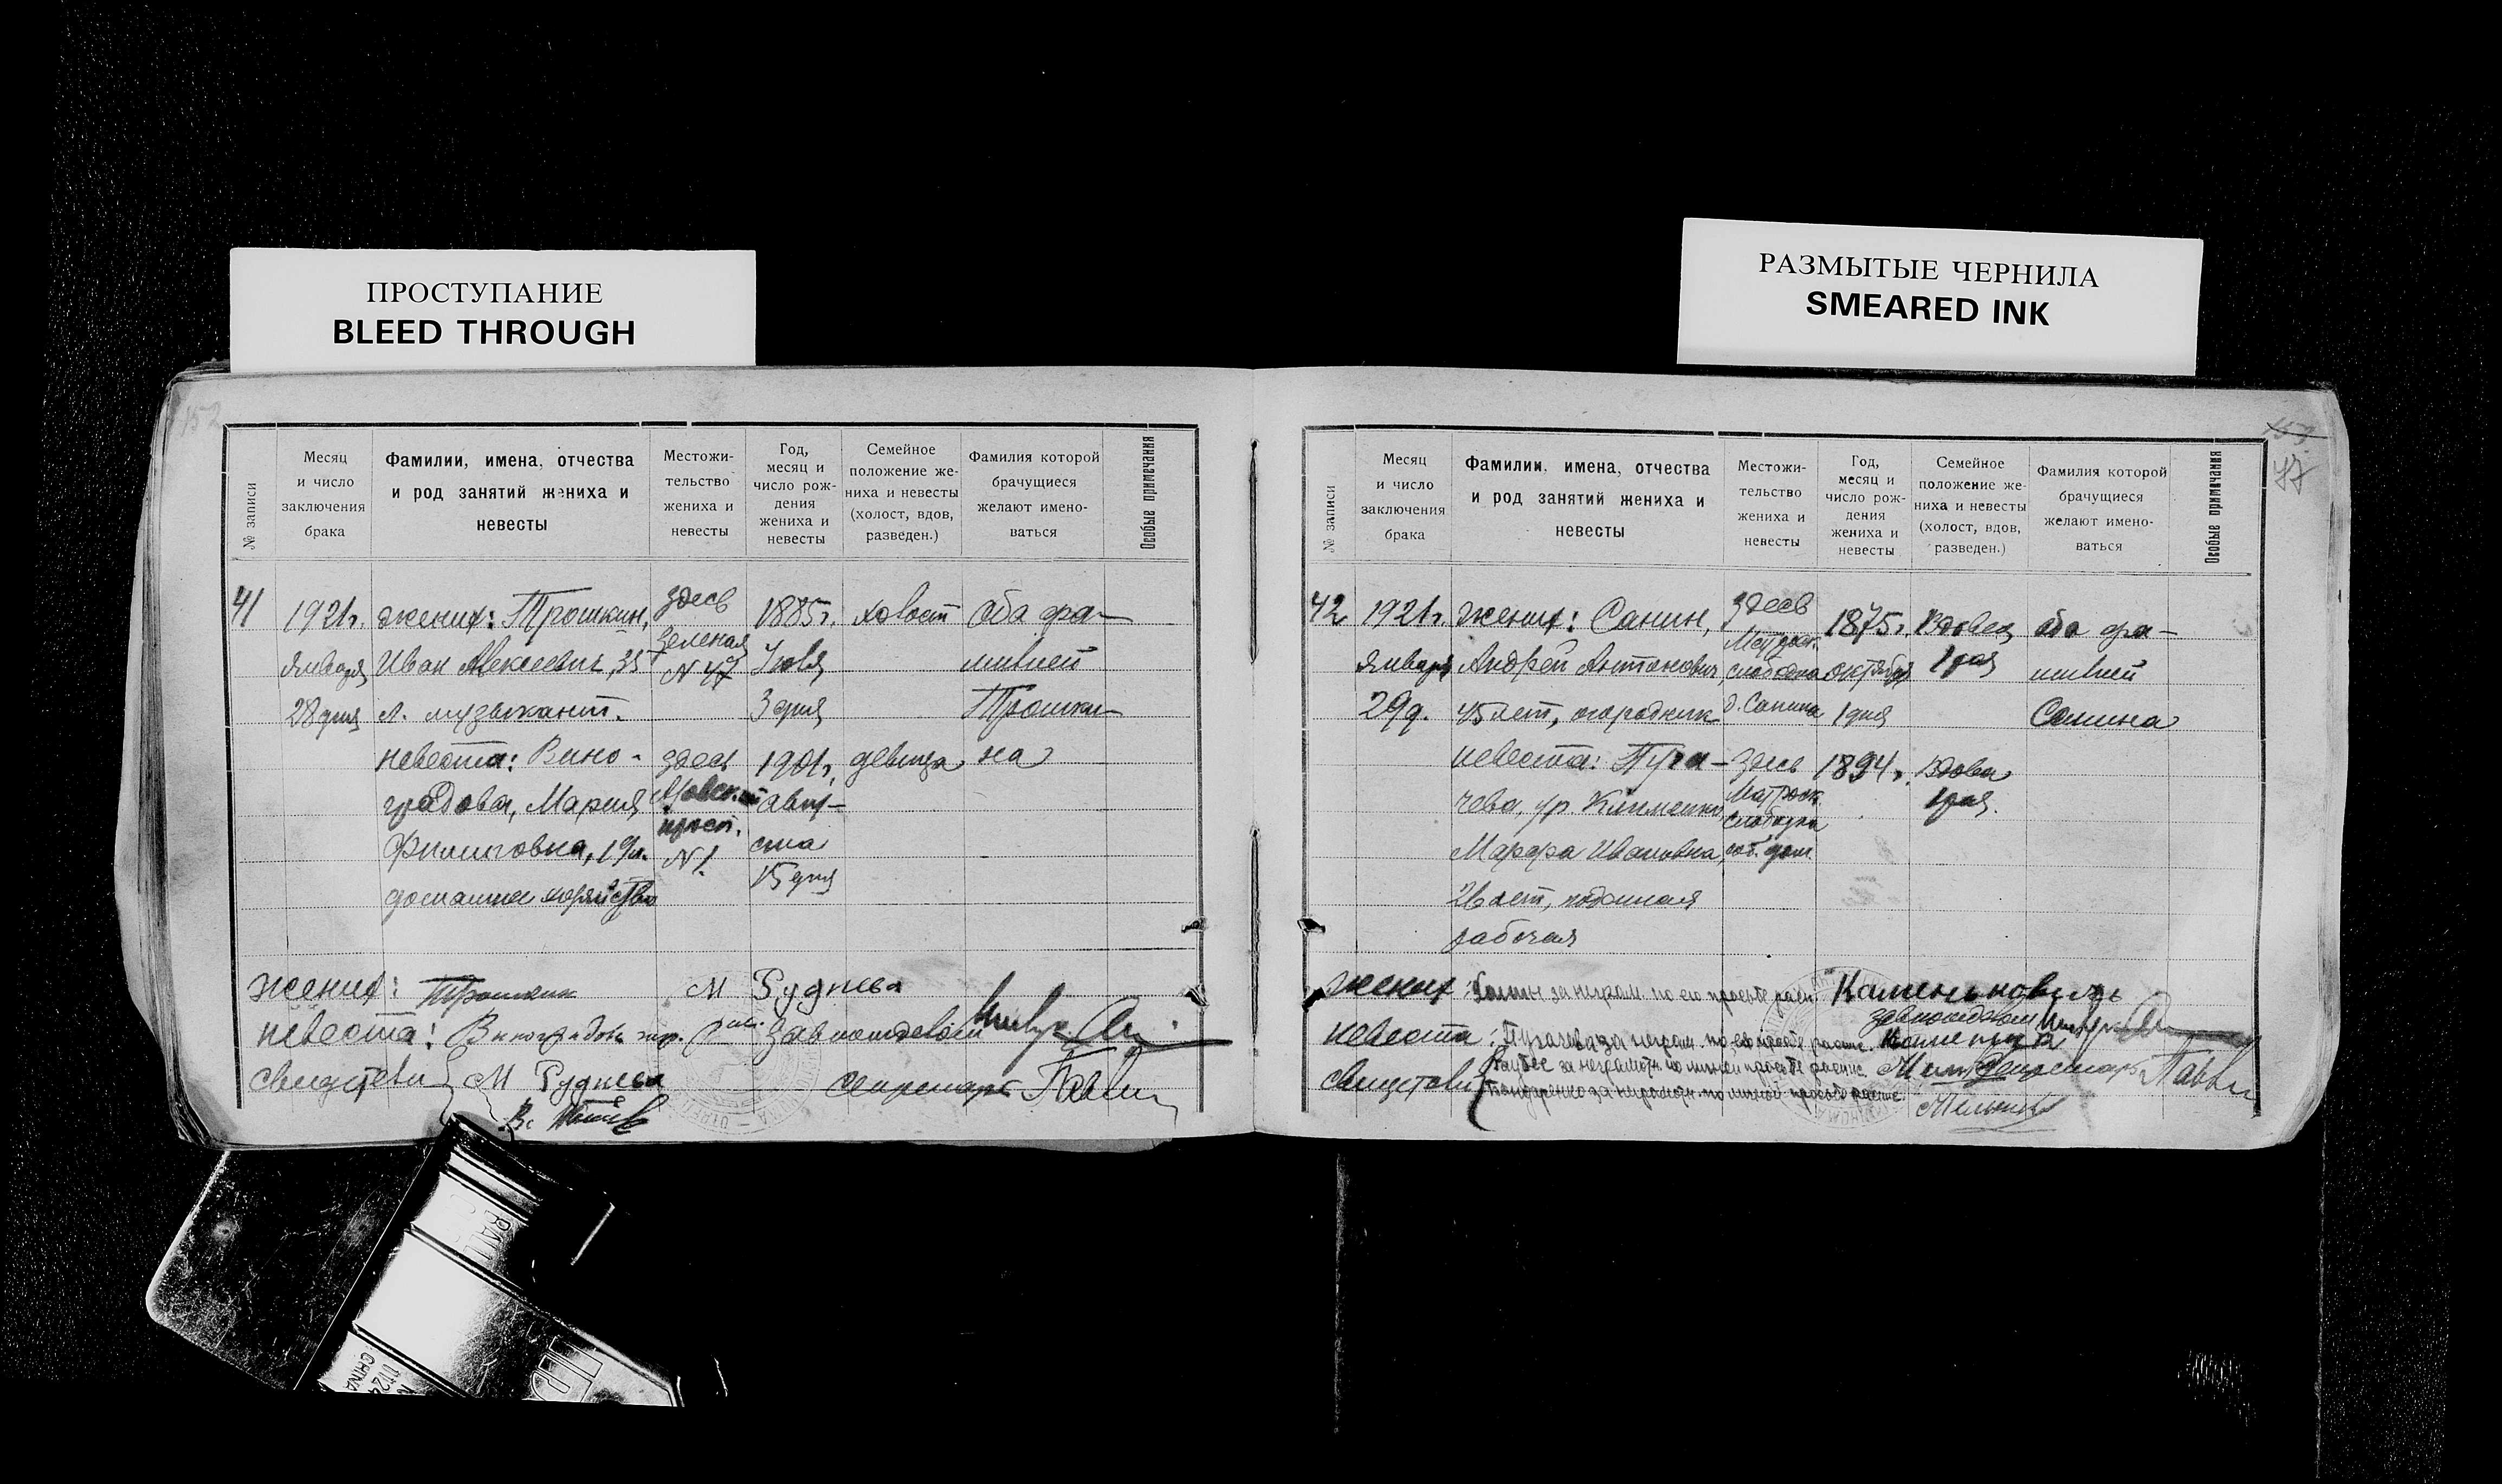 ПРОСТУПАНИЕ
BLEED THROUGH
РАЗМЫТЫЕ ЧЕРНИЛА
SMEARED INK
152
№ записи
Месяц
и число
заключения
брака
Фамилии, имена, отчества
и род занятий жениха и
невесты
Местожи-
тельство
жениха и
невесты
Год,
месяц и
число рож-
дения
жениха и
невесты
Семейное
положение же-
ниха и невесты
(холост, вдов,
разведен.)
Фамилия которой
брачущиеся
желают имено-
ваться
Особые примечания
41
1921г.
января
28 дня
жених: Трошкин,
Иван Алексеевич, 35
л. музыкант.
невеста: Вино-
градова, Мария
Филипповна, 19 л.
домашнее хозяйство
здесь
Зеленая
N 47
здесь
прост.
N 1
1885г.
Июля
3 дня
1901г.
авгу-
ста
15 дня
холост
девица
оба фа-
милией
Трошки-
на
жених: Трошкин
М Руднева
невеста: Виноградова
завподотделом
свидетели М Руднева
секретарь
№ записи
Месяц
и число
заключения
брака
Фамилии, имена, отчества
и род занятий жениха и
невесты
Местожи-
тельство
жениха и
невесты
Год,
месяц и
число рож-
дения
жениха и
невесты
Семейное
положение же-
ниха и невесты
(холост, вдов,
разведен.)
Фамилия которой
брачущиеся
желают имено-
ваться
Особые примечания
42
1921г.
января
29 д.
жених: Санин,
Андрей Антонович,
45 лет, огородник
невеста: Пуга-
чева, ур. Клименко
Марфа Ивановна,
26 лет, поденная
рабочая
здесь
слободка
д. Санина
здесь
Матрос.
слободка
соб. дом.
1875г.
октября
1 дня
1894г.
Вдовец
1 рая
Вдова
1 рая.
оба фа-
милией
Санина
жених: Санин за неграм. по его просьбе расп.
завподотделом
невеста: Пугачева за неграм. по её просьбе распис.
свидетели
за неграмотн. по личной просьбе распис.
Бондаренко за неграмотн. по личной просьбе распис.
секретарь